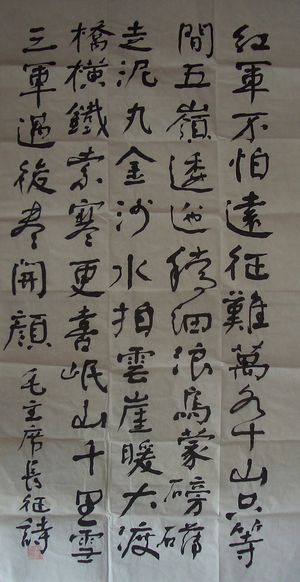 紅軍不怕遠征難萬水千山只等
間五嶺逶迤騰細浪烏蒙磅礴
走泥丸金沙水拍雲崖暖大渡
橋橫鐵索寒更喜岷山千里雪
三軍過後盡開顏 毛主席長征詩